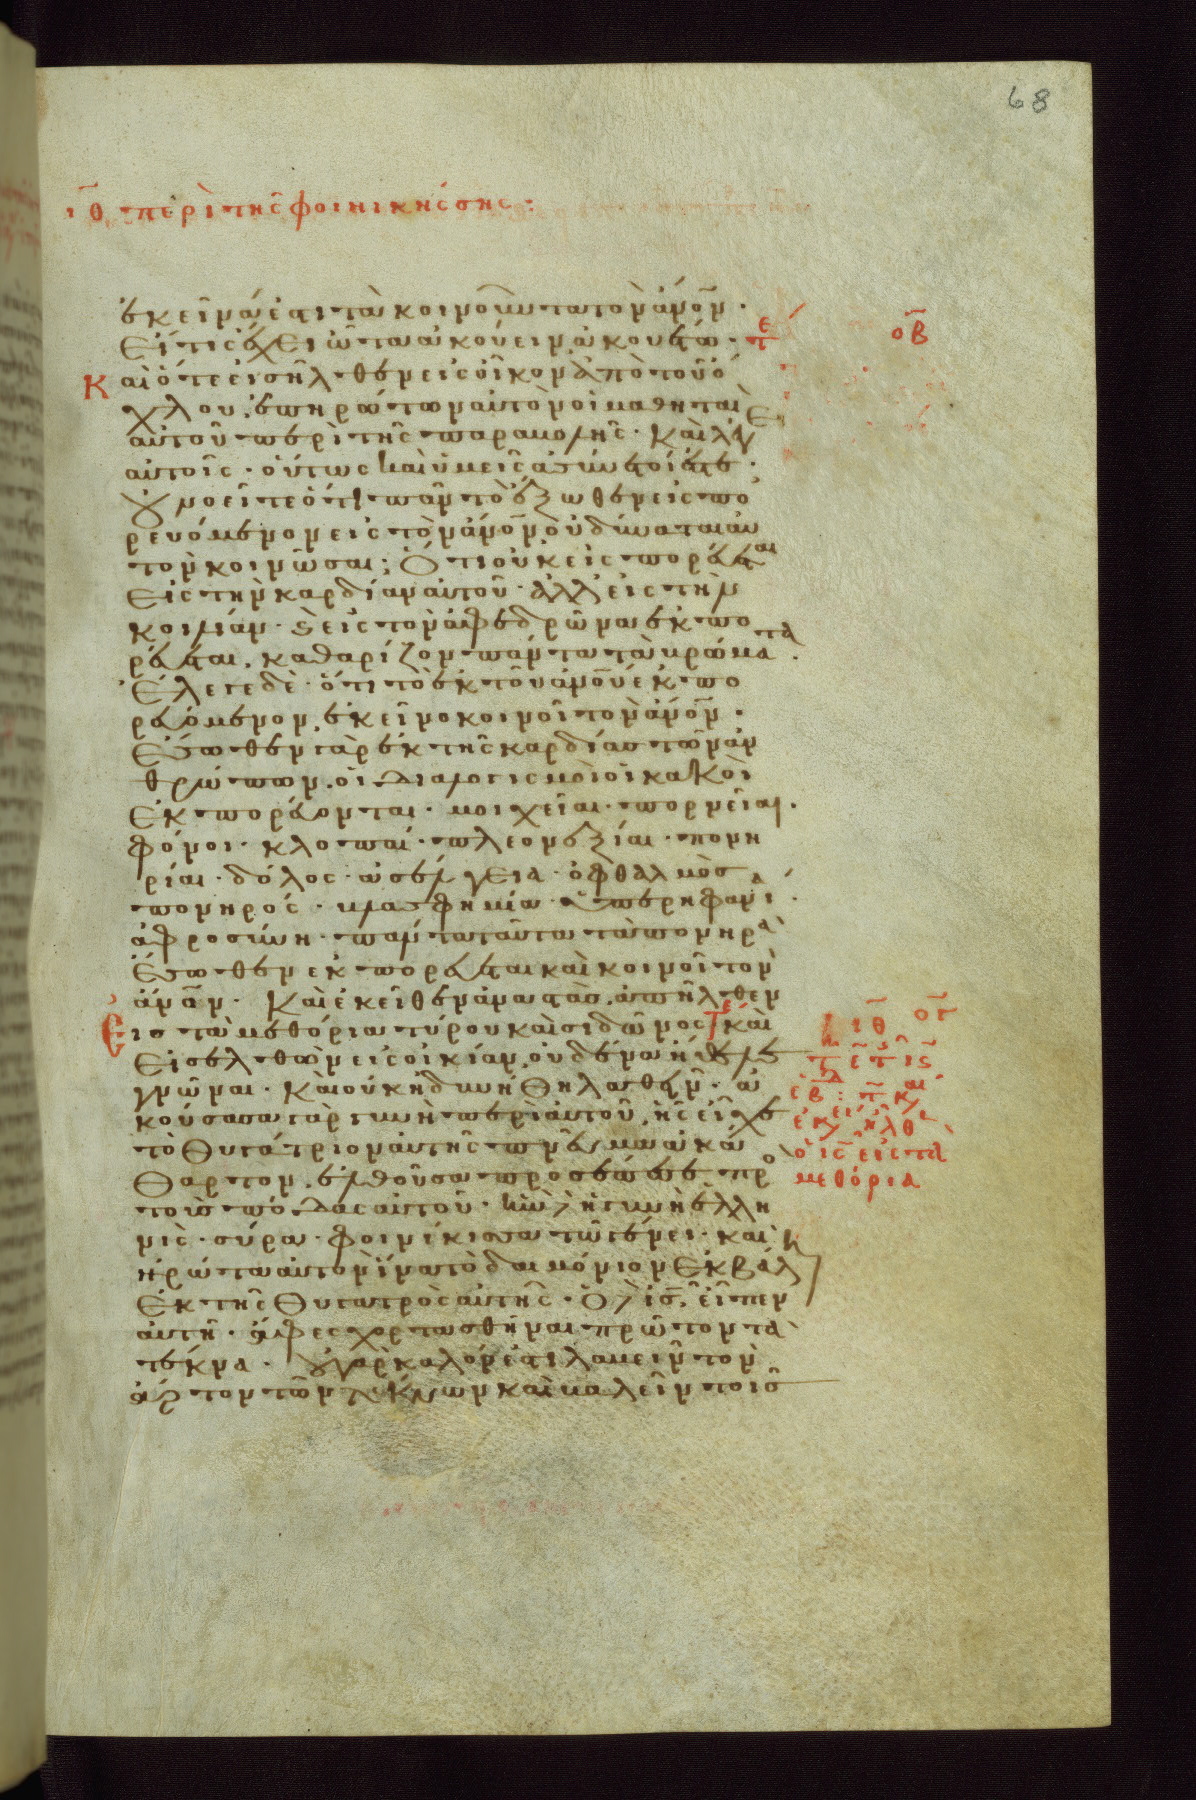 68
ιθ περὶ τῆς φοινικήσσης:
ἐκεῖνά ἐστι τὰ κοινοῦντα τὸν ἄνον.
Εἴ τις ἔχει ὦτα ἀκούειν ἀκουέτω. τε
οβ
Καὶ ὅτε εἰσῆλθεν εἰς οἶκον ἀπὸ τοῦ ὄ
χλου, ἐπηρώτων αὐτὸν οἱ μαθηταὶ
αὐτοῦ περὶ τῆς παραβολῆς. Καὶ λέγει
αὐτοῖς. οὕτως καὶ ὑμεῖς ἀσύνετοί ἐστε.
Οὐ νοεῖτε ὅτι πᾶν τὸ ἔξωθεν εἰσπο
ρευόμενον εἰς τὸν ἄνον οὐ δύναται αὐ
τὸν κοινῶσαι; Ὅτι οὐκ εἰσπορεύεται
Εἰς τὴν καρδίαν αὐτοῦ. ἀλλ' εἰς τὴν
κοιλίαν. ϗ εἰς τὸν ἀφεδρῶνα ἐκπο
ρεύεται, καθαρίζον πάντα τὰ βρώματα.
Ἔλεγε δὲ. ὅτι τὸ ἐκ τοῦ ἀνοῦ ἐκπο
ρευόμενον, ἐκεῖνο κοινοῖ τὸν ἄνον.
Ἔσωθεν γὰρ ἐκ τῆς καρδίας τῶν ἀν
θρώπων, οἱ διαλογισμοὶ οἱ κακοὶ
Ἐκπορεύονται. μοιχεῖαι. πορνεῖαι.
φόνοι. κλοπαί. πλεονεξίαι. πονη
ρίαι. δόλος. ἀσέλγεια. ὀφθαλμὸς
πονηρός. βλασφημία. ὑπερηφανία.
ἀφροσύνη. πάντα ταῦτα τὰ πονηρὰ
Ἔσωθεν ἐκπορεύεται καὶ κοινοῖ τὸν
ἄναν. Καὶ ἐκεῖθεν ἀναστὰς, ἀπῆλθεν
Εἰς τὰ μεθόρια τύρου καὶ σιδῶνος, καὶ
ιθ ογ
Εἰσελθὼν εἰς οἰκίαν, οὐδένα ἤθελε
γνῶναι. Καὶ οὐκ ἠδυνήθη λαθεῖν. ἀ
κούσασα γὰρ γυνὴ περὶ αὐτοῦ, ἧς εἶχε
τὸ θυγάτριον αὐτῆς πνεῦμα ἀκά
θαρτον, ἐλθοῦσα προσέπεσε πρὸ
τοὺς πόδας αὐτοῦ. ἦν δὲ ἡ γυνὴ ἑλλη
νὶς. σύρα. φοινίκισσα τῷ γένει. καὶ
ἠρώτα αὐτὸν ἵνα τὸ δαιμόνιον Ἐκβάλῃ
Ἐκ τῆς θυγατρὸς αὐτῆς. Ὁ δὲ ις, εἶπεν
αὐτῇ. ἄφες χορτασθῆναι πρῶτον τὰ
τέκνα. οὐ γὰρ καλόν ἐστι λαβεῖν τὸν
ἄρτον τῶν τέκνων καὶ βαλεῖν τοῖς
ὁ ις εἰς τὰ
μεθόρια